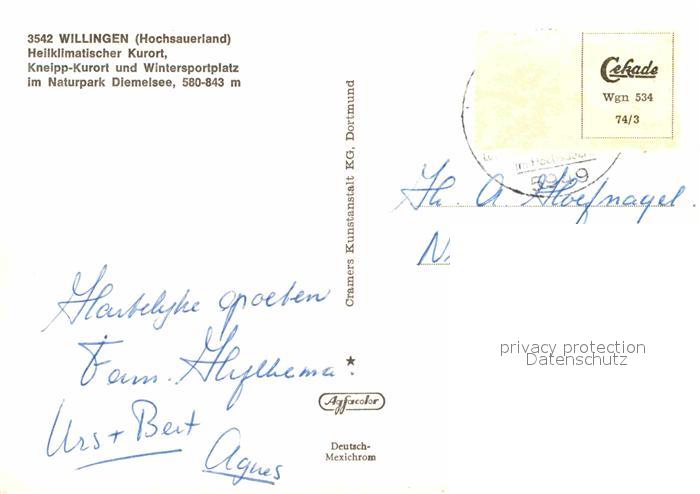 3542 WILLINGEN (Hochsauerland)
Heilklimatischer Kurort,
Kneipp-Kurort und Wintersportplatz
im Naturpark Diemelsee, 580-843 m
Cekade
Wgn 534
74/3
im Hochsauer
Cramers Kunstanstalt KG, Dortmund
A. Hoefnagel.
N.
Hartelyke groeten
Fam.
Urs + Bert
Agnes
privacy protection
Datenschutz
Agfacolor
Deutsch-
Mexichrom